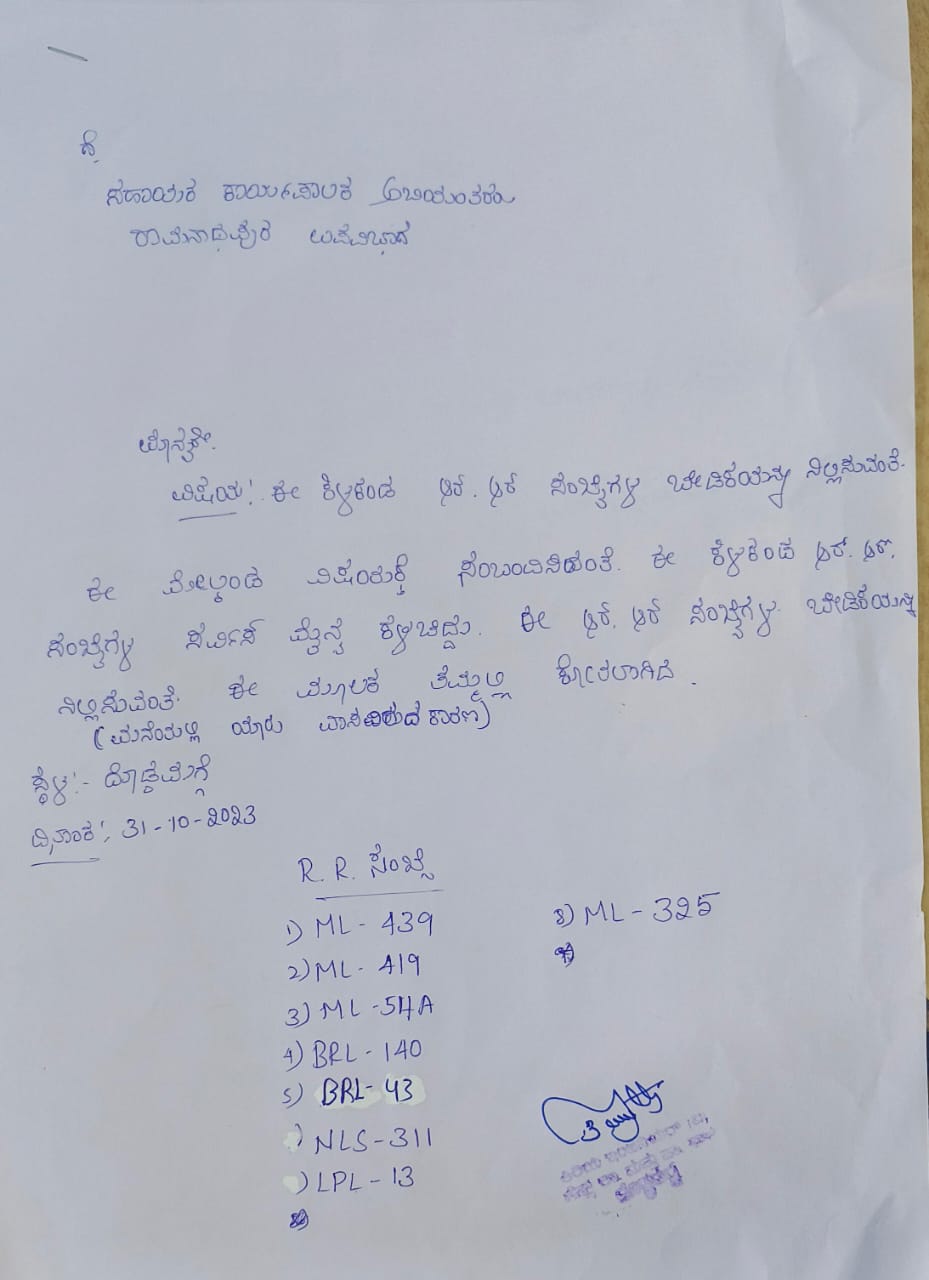 ಗೆ,
ಸಹಾಯಕ ಕಾರ್ಯಪಾಲಕ ಅಭಿಯಂತರರು
ರಾಮನಾಥಪುರ ಉಪವಿಭಾಗ
ಮಾನ್ಯರೇ.
ವಿಷಯ: ಈ ಕೆಳಕಂಡ ಆರ್. ಆರ್ ಸಂಖ್ಯೆಗಳ ಬೇಡಿಕೆಯನ್ನು ನಿಲ್ಲಿಸುವಂತೆ.
ಈ ಮೇಲ್ಕಂಡ ವಿಷಯಕ್ಕೆ ಸಂಬಂಧಿಸಿದಂತೆ. ಈ ಕೆಳಕಂಡ ಆರ್. ಆರ್.
ಸಂಖ್ಯೆಗಳ ಸರ್ವಿಸ್ ಮೈನ್ನ ಕಳಚಿದ್ದು. ಈ ಆರ್. ಆರ್ ಸಂಖ್ಯೆಗಳ ಬೇಡಿಕೆಯನ್ನು
ನಿಲ್ಲಿಸುವಂತೆ ಈ ಮೂಲಕ ತಮ್ಮಲ್ಲಿ ಕೋರಲಾಗಿದೆ.
(ಮನೆಯಲ್ಲಿ ಯಾರು ವಾಸವಿರುದ ಕಾರಣ)
ಸ್ಥಳ:- ದೊಡ್ಡಮಗ್ಗೆ
ದಿನಾಂಕ: 31-10-2023
R. R. ಸಂಖ್ಯೆ
1) ML - 439
2) ML - 419
3) ML - 54A
4) BRL - 140
5) BRL - 43
) NLS - 311
) LPL - 13
8) ML - 325